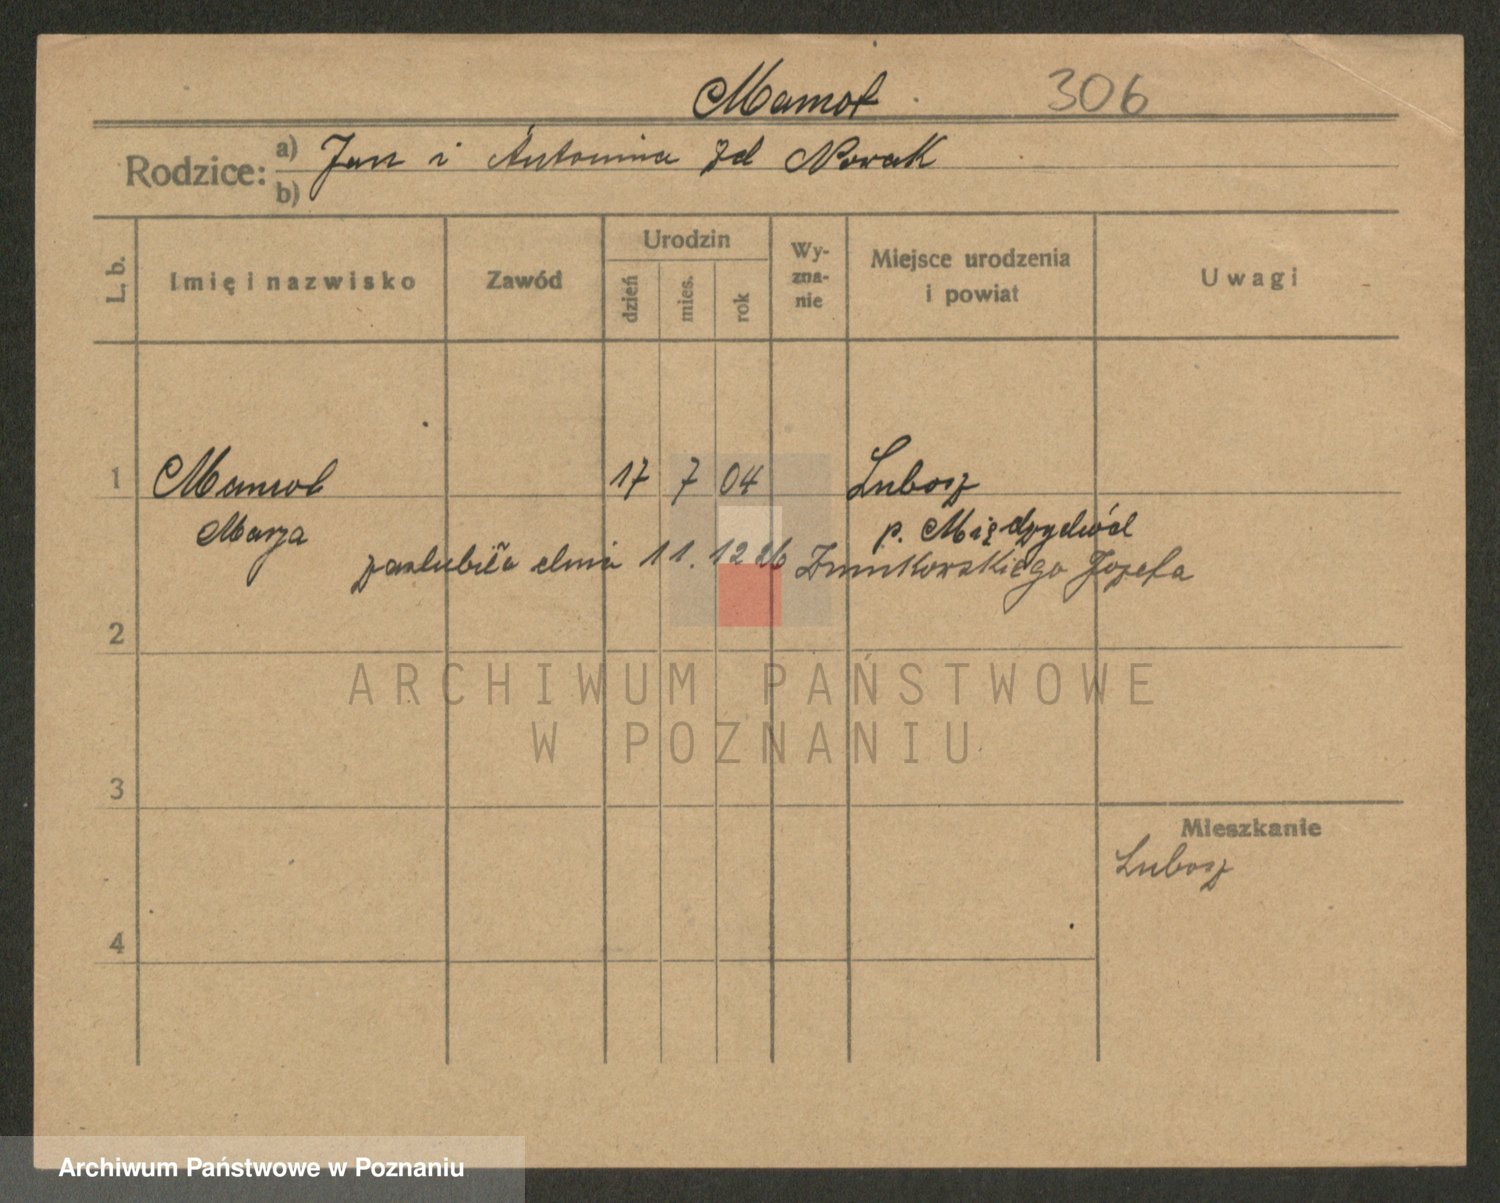 Mamot 306
Rodzice: a) Jan i Antonina zd Nowak
b)
L. b. Imię i nazwisko Zawód Urodzin dzień mies. rok Wy-zna-nie Miejsce urodzenia i powiat Uwagi
1 Mamot 17 7 04 Lubosz
Marja p. Międzychód
zaslubiła dnia 11. 12 26 Józefa
2
ARCHIWUM PAŃSTWOWE
W POZNANIU
3
Mieszkanie
Lubosz
4
Archiwum Państwowe w Poznaniu